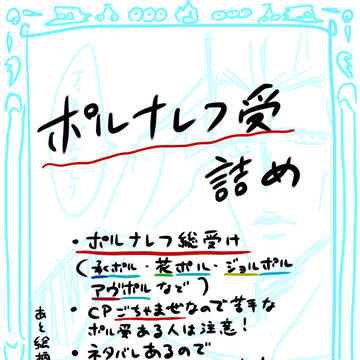 ポルナレフ受
詰め
・ポルナレフ総受け
(承ポル・花ポル・ジョルポル
アヴポルなど)
・CPごちゃまぜなので苦手な
ポル受ある人は注意!
・ネタバレあるので
あと絵柄